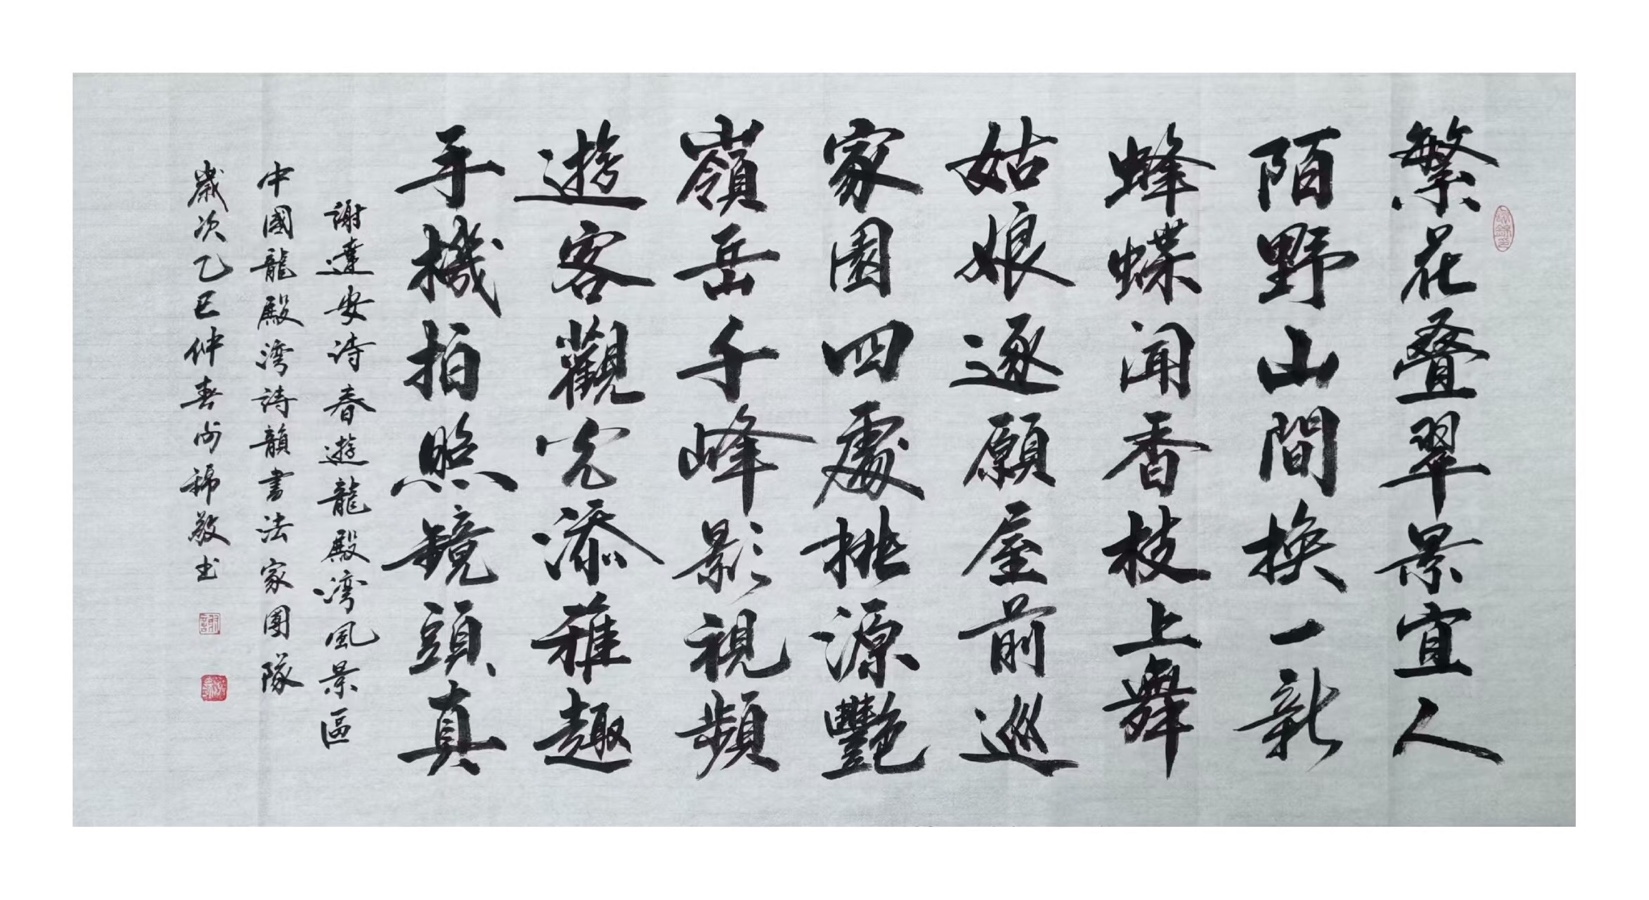 繁花叠翠景宜人
陌野山間换一新
蜂蝶闻香枝上舞
姑娘逐願屋前巡
家園四處桃源艷
嶺岳千峰影視頻
遊客觀光添雅趣
手機拍照镜頭真
謝達安诗春遊龍殿湾風景區
中國龍殿湾詩韻書法家團隊
歲次乙巳仲春 敬书